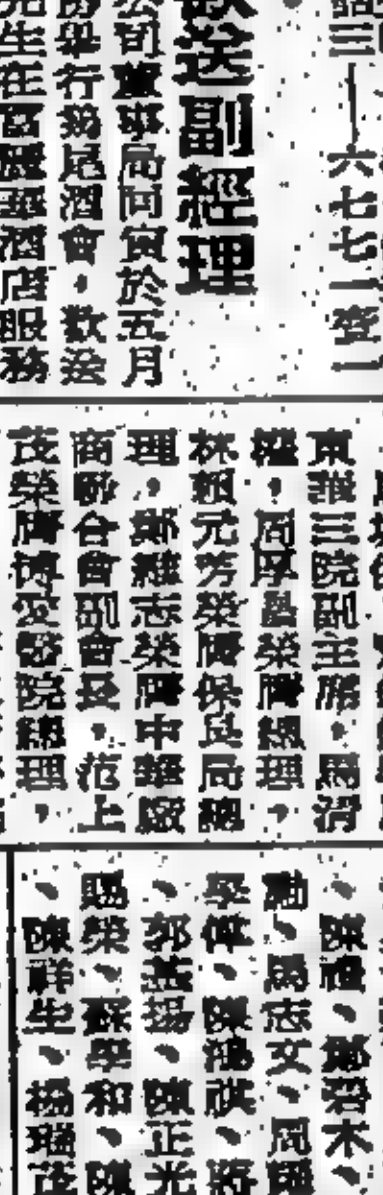 六七七一
送副經理
公司董事局同寅於五月
行鷄尾酒會，歡送
先生在富麗華酒店服務
東華三院副主席，馬清
權，周厚	榮膺總理，
林賴元芳榮膺保良局總
理，鄭維志榮膺中華廠
商聯合會副會長，范上
茂榮膺博愛醫院總理，
、陳禮、鄭君木、
勳、馬志文、周
學偉、陳鴻祺、將
、郭益揚、陳正光
賜榮、蘇學和、陳
、陳祥生、楊瑞茂